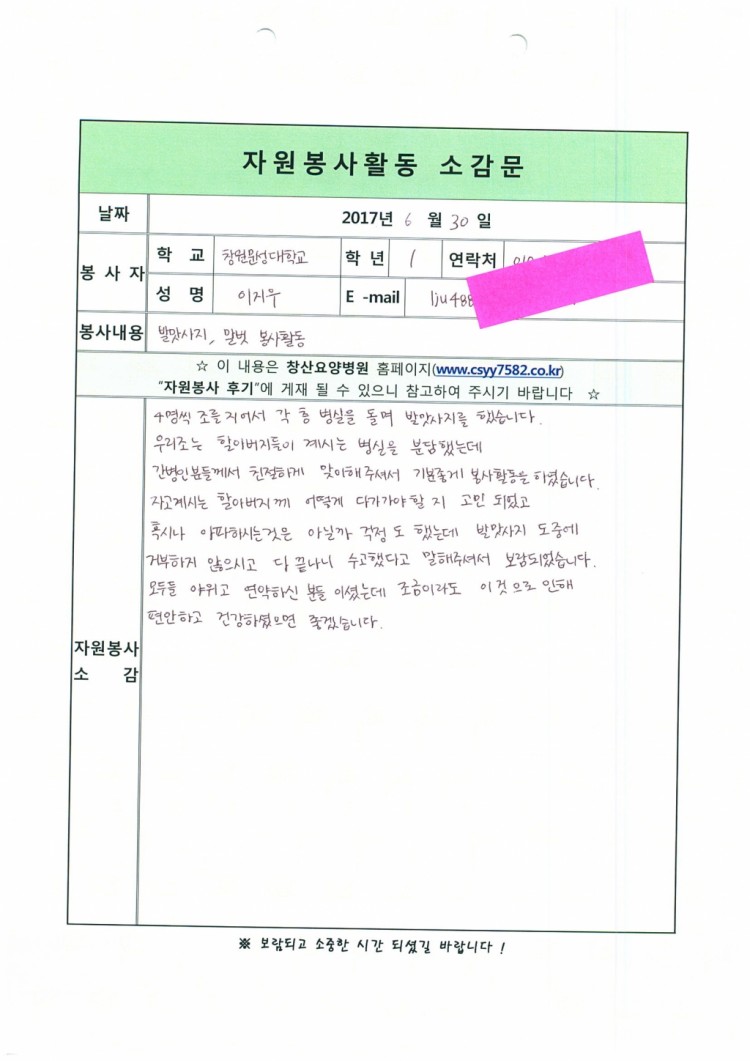 자원봉사활동 소감문
날짜 2017년 6 월 30 일
봉 사 자 학 교 창원문성대학교 학 년 1 연락처
성 명 이지우 E -mail
봉사내용 발맛사지, 말벗 봉사활동
☆ 이 내용은 창산요양병원 홈페이지(www.csyy7582.co.kr)
"자원봉사 후기"에 게재 될 수 있으니 참고하여 주시기 바랍니다 ☆
자원봉사 소 감
4명씩 조를 지어서 각 층 병실을 돌며 발맛사지를 했습니다.
우리조는 할아버지들이 계시는 병실을 분담했는데
간병인분들께서 친절하게 맞이해주셔서 기분좋게 봉사활동을 하였습니다.
자고계시는 할아버지께 어떻게 다가가야 할 지 고민 되었고
혹시나 아파하시는것은 아닐까 걱정도 했는데 발맛사지 도중에
거부하지 않으시고 다 끝나니 수고했다고 말해주셔서 보람되었습니다.
모두들 야위고 연약하신 분들 이셨는데 조금이라도 이것으로 인해
편안하고 건강하셨으면 좋겠습니다.
※ 보람되고 소중한 시간 되셨길 바랍니다 !